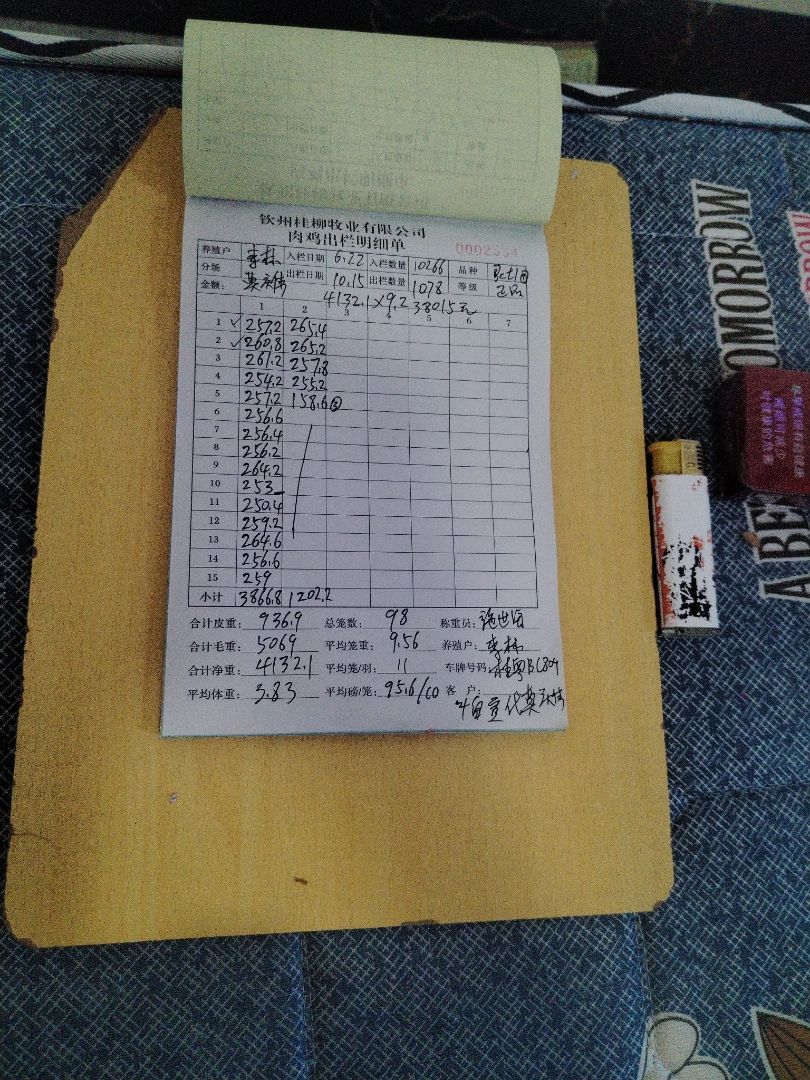 钦州桂柳牧业有限公司
肉鸡出栏明细单
养殖户 李林 入栏日期 6.22 入栏数量 10266 品种
分场 出栏日期 10.15 出栏数量 1078 等级 正品
金额: 4132.1×9.2 38015元
1 2 3 4 5 6 7
1 ✓ 257.2 265.4
2 ✓ 260.8 265.2
3 261.2 257.8
4 254.2 255.2
5 257.2 158.6③
6 256.6
7 256.4
8 256.2
9 264.2
10 253
11 250.4
12 259.2
13 264.6
14 256.6
15 259
小计 3866.8 1202.2
合计皮重: 936.9 总笼数: 98 称重员:
合计毛重: 5069 平均笼重: 9.56 养殖户: 李林
合计净重: 4132.1 平均笼/羽: 11 车牌号码:
平均体重: 3.83 平均磅/笼: 95.6/10 客 户:
TOMORROW
A BE